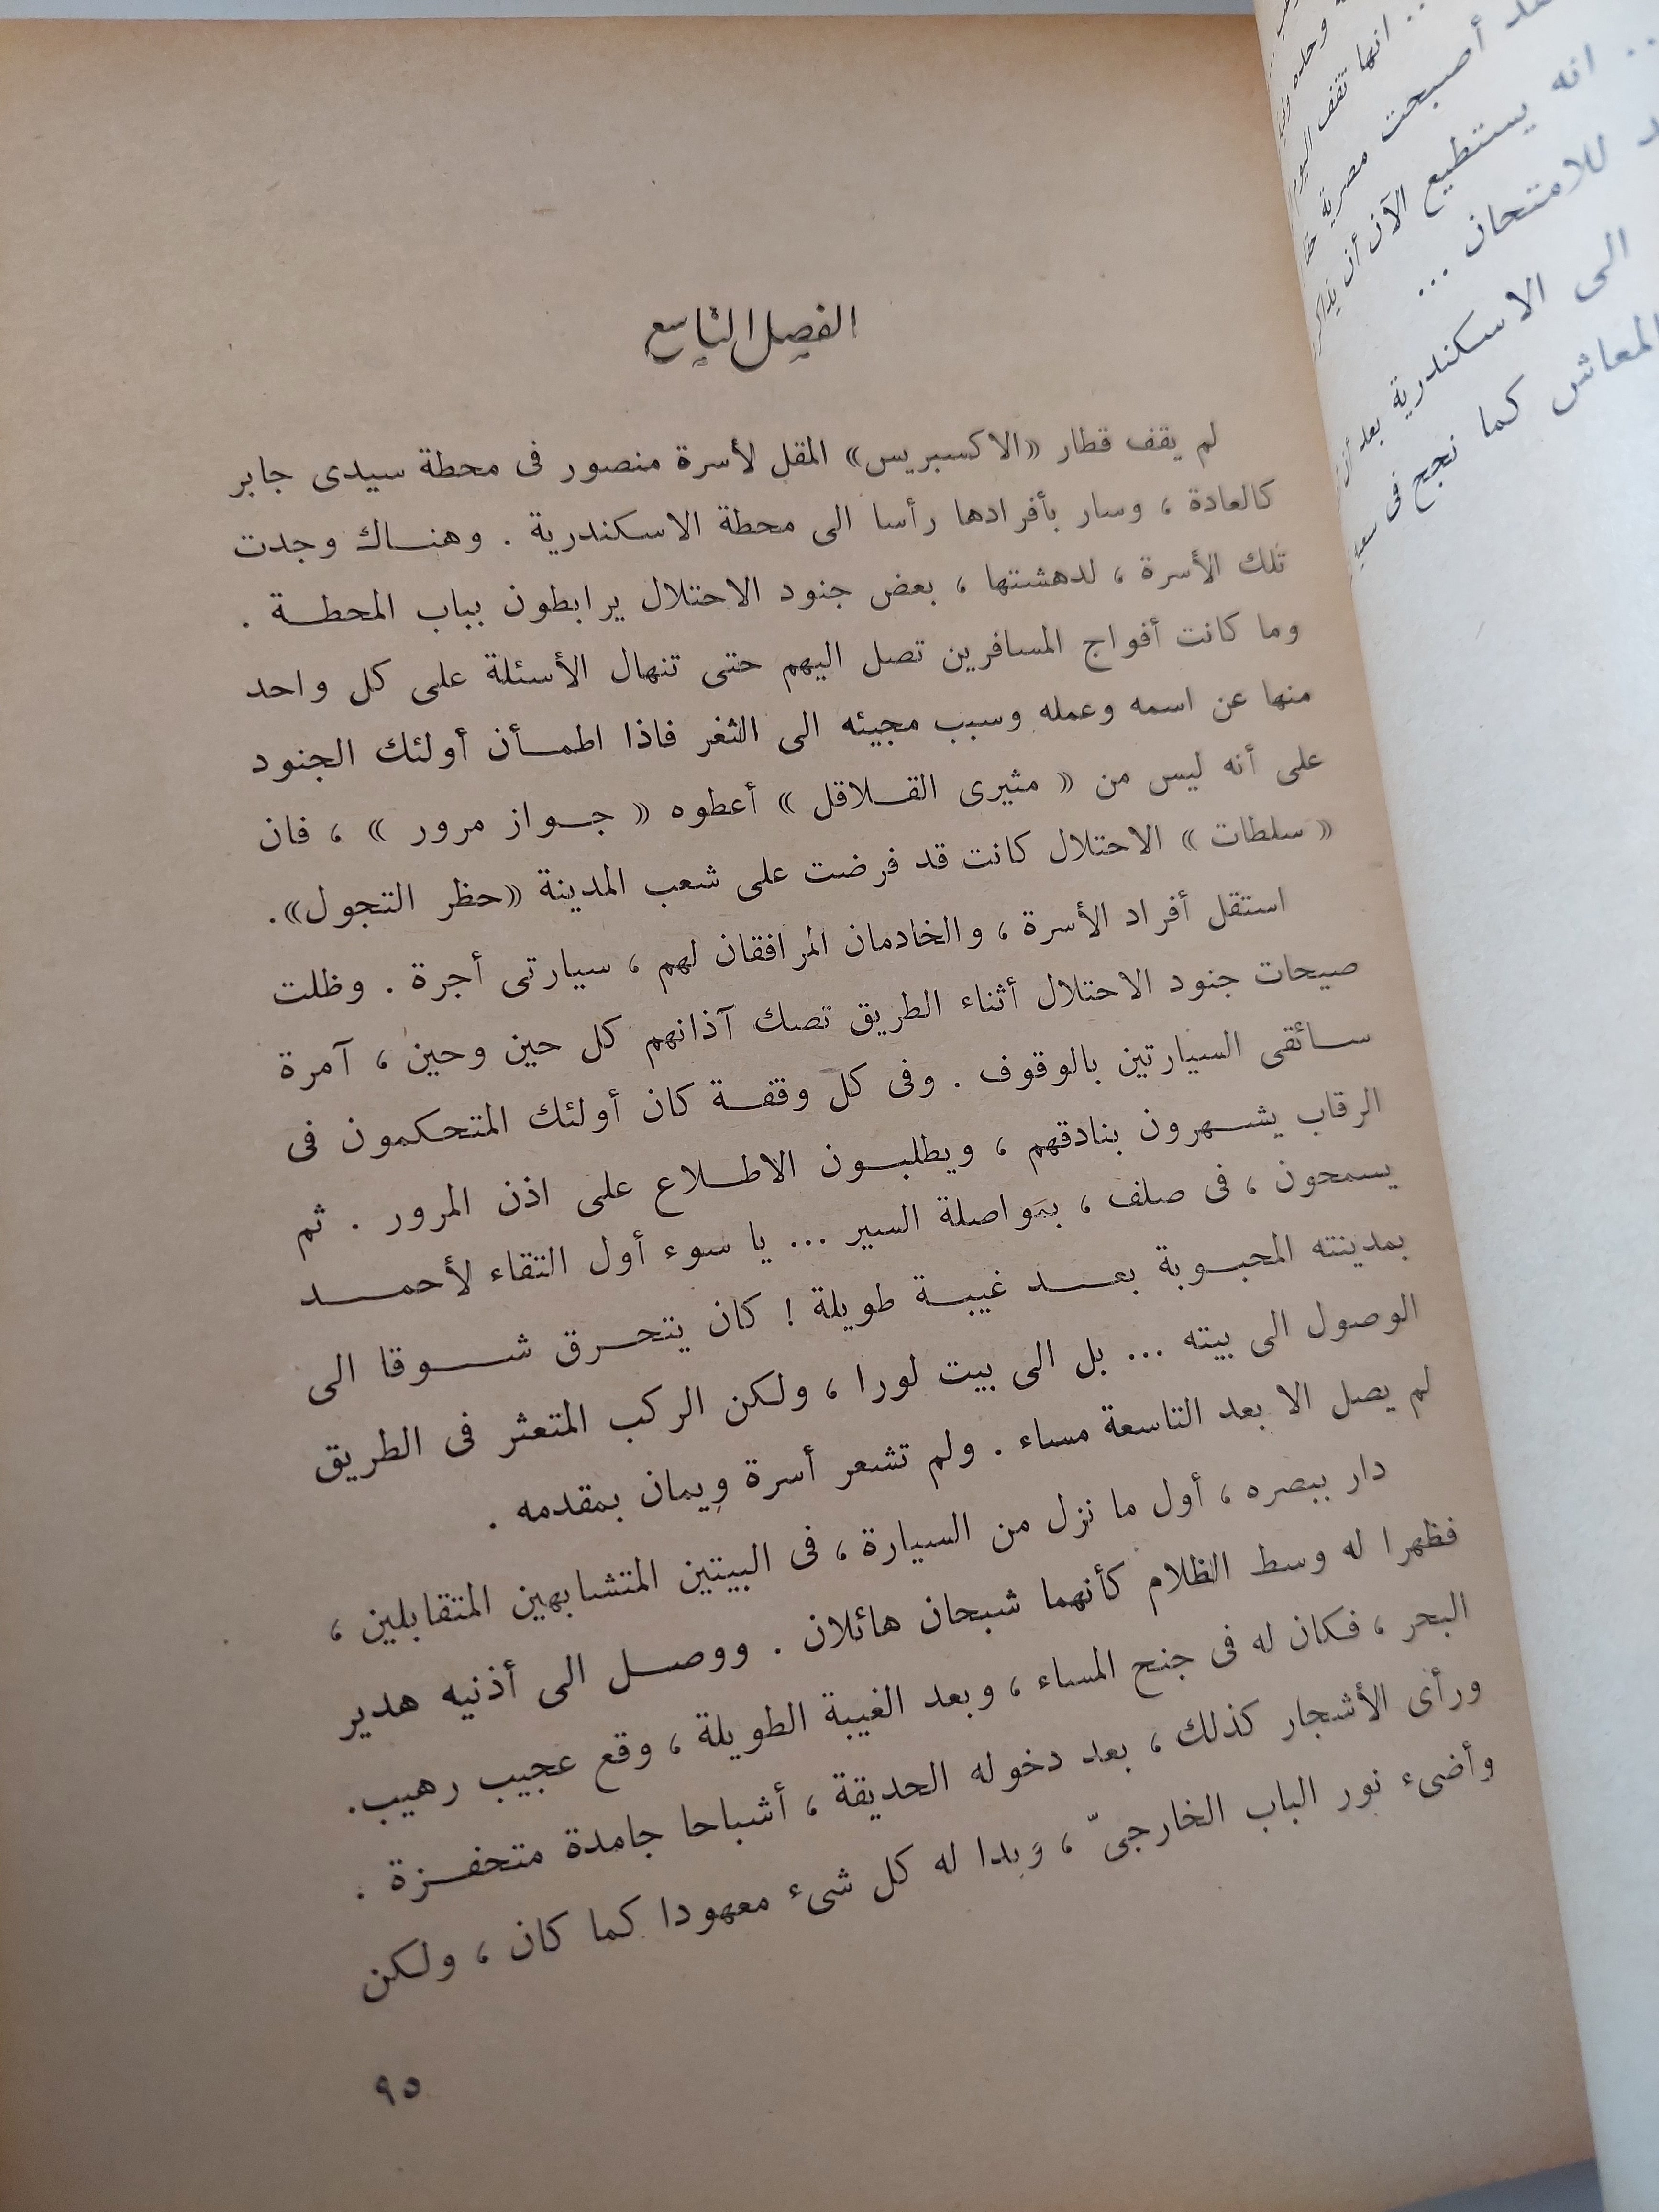 الفصل التاسع
لم يقف قطار «الاكسبريس» المقل لأسرة منصور فى محطة سيدى جابر
كالعادة ، وسار بأفرادها رأسا الى محطة الاسكندرية . وهنـاك وجدت
تلك الأسرة ، لدهشتها ، بعض جنود الاحتلال يرابطون بباب المحطـة .
وما كانت أفواج المسافرين تصل اليهم حتى تنهال الأسئلة على كل واحد
منها عن اسمه وعمله وسبب مجيئه الى الثغر فاذا اطمـأن أولئك الجنود
على أنه ليس من « مثيرى القـلاقل » أعطوه « جـواز مرور » ، فان
« سلطات » الاحتلال كانت قد فرضت على شعب المدينة «حظر التجول».
استقل أفراد الأسرة ، والخادمان المرافقان لهم ، سيارتى أجرة . وظلت
صيحات جنود الاحتلال أثناء الطريق تصك آذانهم كل حين وحين ، آمرة
سـائقى السيارتين بالوقوف . وفى كل وقفـة كان أولئك المتحكمون فى
الرقاب يشـهرون بنادقهم ، ويطلبـون الاطـلاع على اذن المرور . ثم
يسمحون ، فى صلف ، بمواصلة السير ... يا سوء أول التقاء لأحمـــد
بمدينته المحبـوبة بعـــد غيبـة طويلة ! كان يتحـرق شـــوقا الى
الوصول الى بيته ... بل الى بيت لورا ، ولكن الركب المتعثر فى الطريق
لم يصل الا بعد التاسعة مساء . ولم تشعر أسرة ويمان بمقدمه .
دار ببصره ، أول ما نزل من السيارة ، فى البيتين المتشابهين المتقابلين ،
فظهرا له وسط الظلام كأنهما شبحان هائلان . ووصـل الى أذنيه هدير
البحر ، فكان له فى جنح المساء ، وبعد الغيبة الطويلة ، وقع عجيب رهيب.
ورأى الأشجار كذلك ، بعد دخوله الحديقة ، أشباحا جامدة متحفـزة .
وأضىء نور الباب الخارجىّ ، وبدا له كل شىء معهودا كما كان ، ولكن
٩٥
أصبحت مصرية
انها تقف اليوم
.. انه يستطيع الآن أن
للامتحان ...
الى الاسكندرية بعد
المعاش كما نجح فى